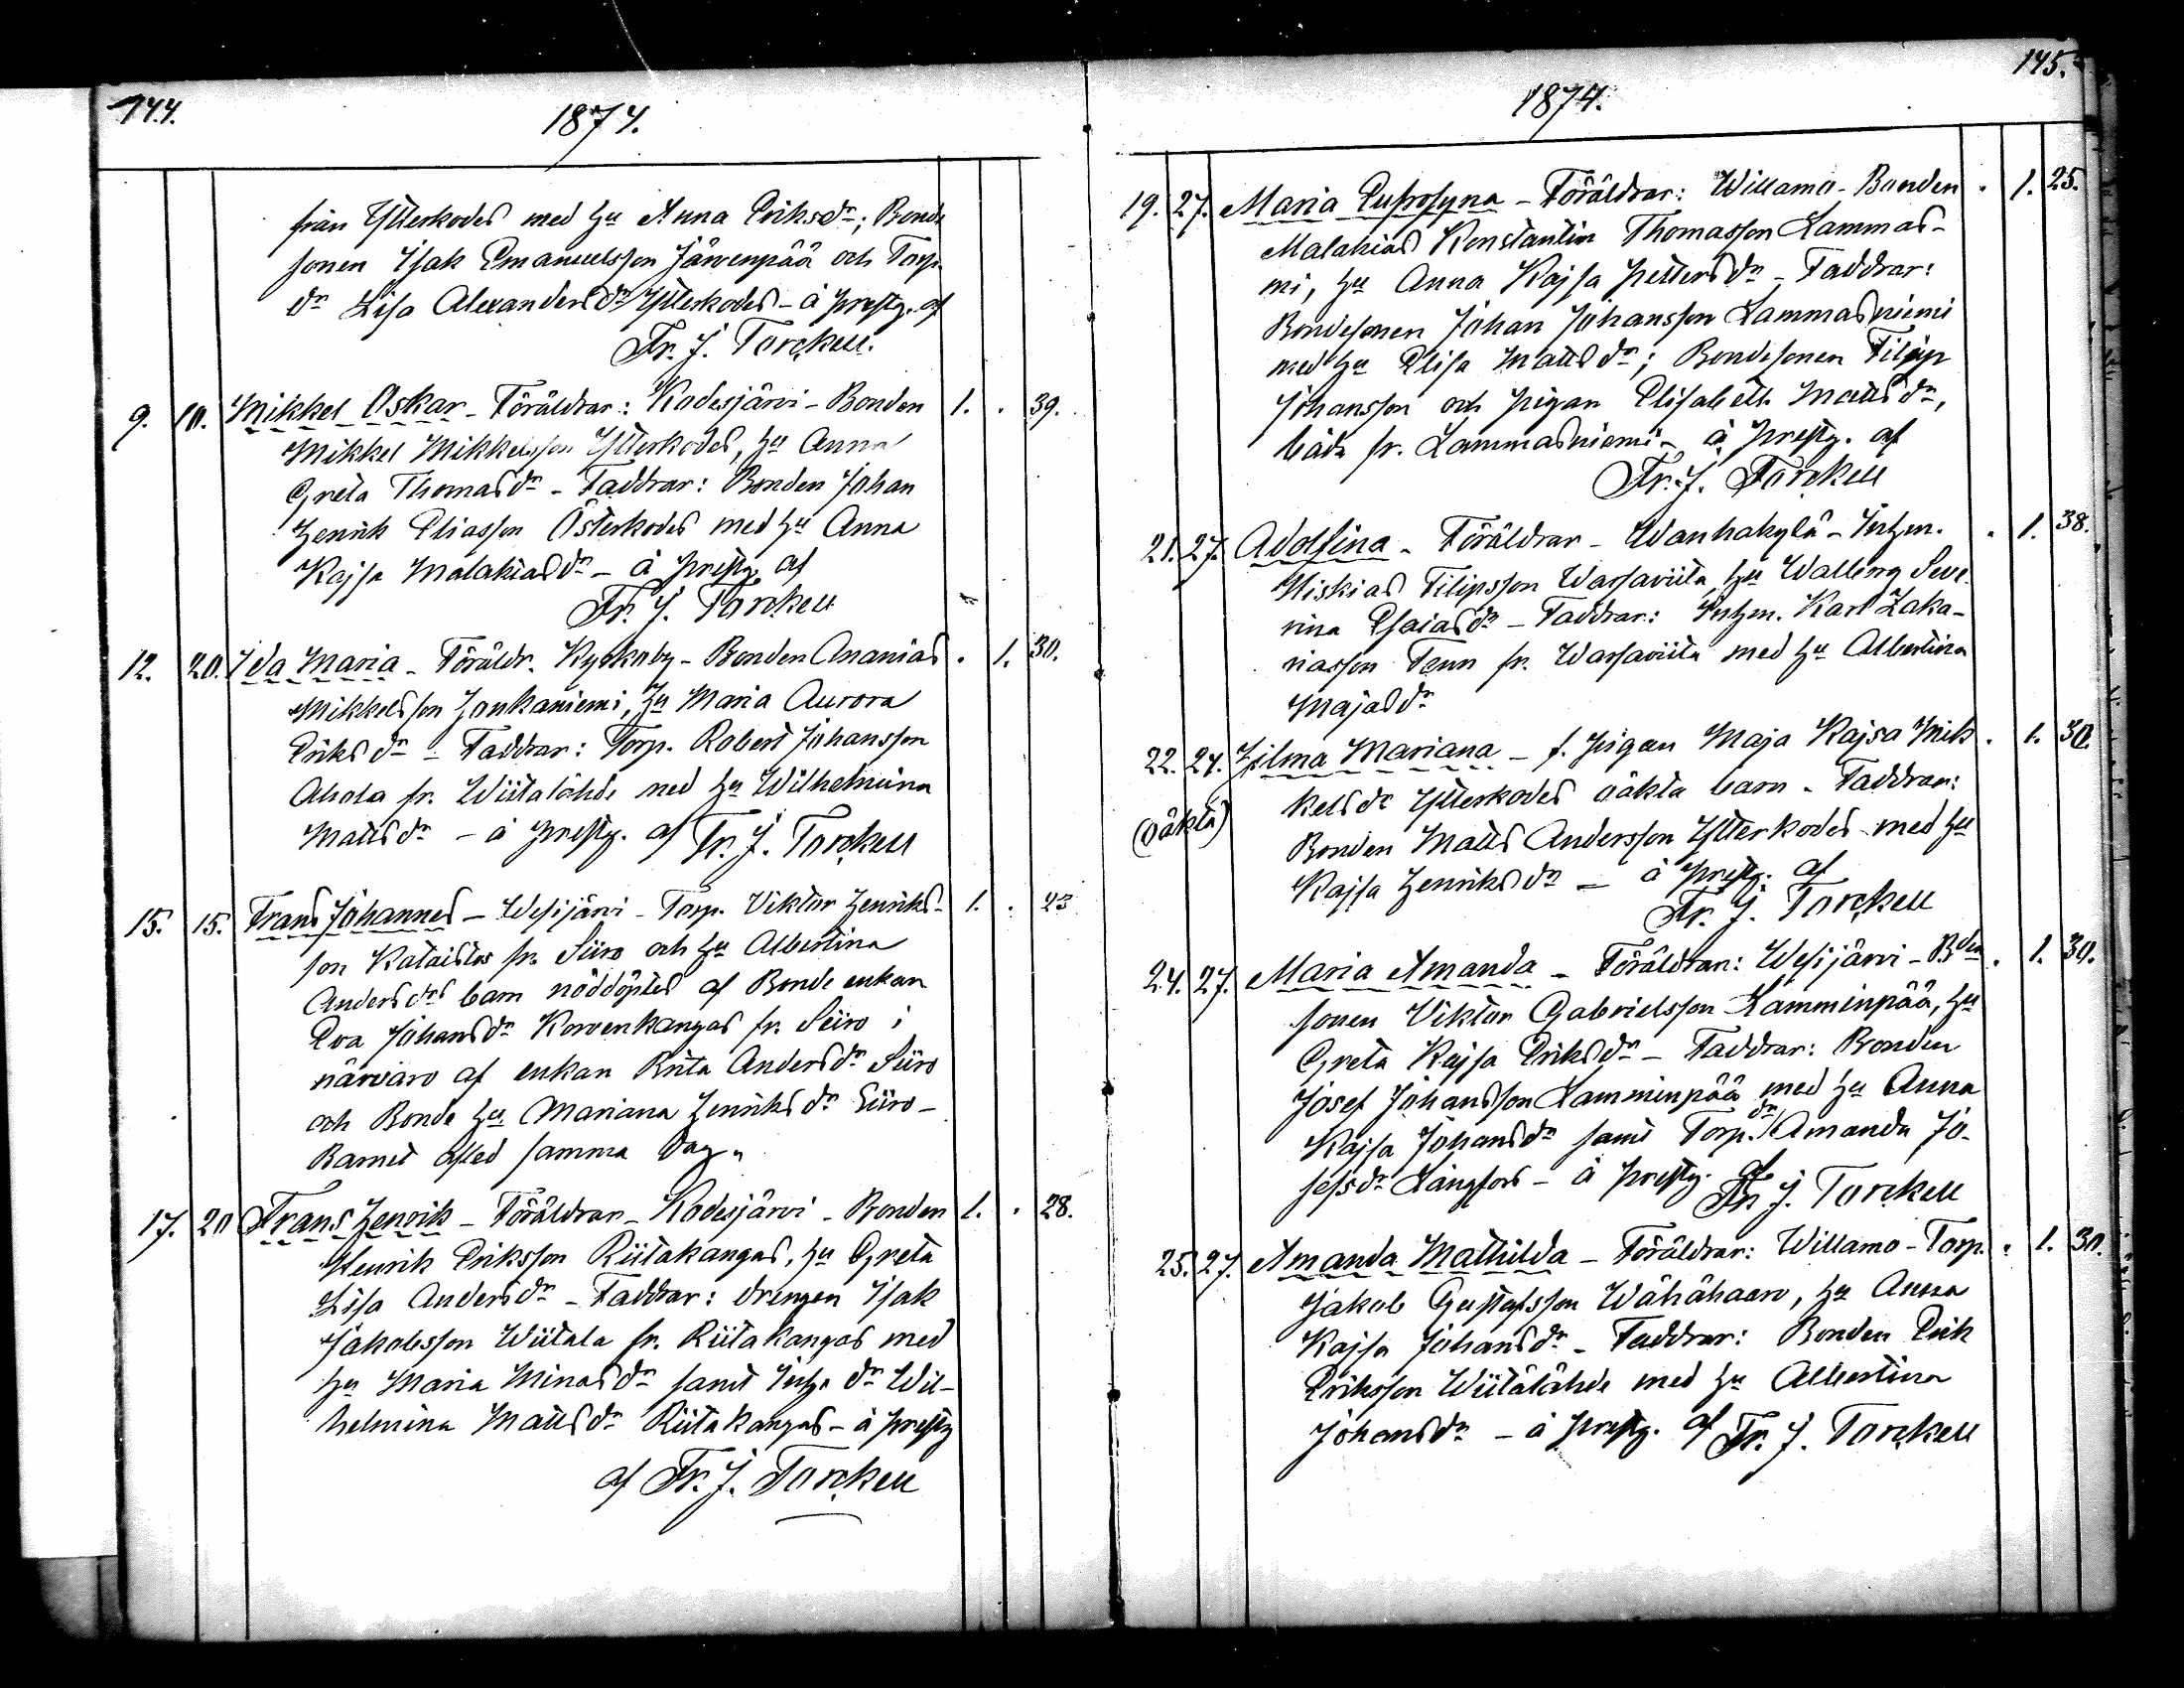 144.
1874.
från Ytterkodes med hu Anna Eriksdr; Bonde
sonen Isak Emanuelsson Järvenpää och Torp.
dr Lisa Alexandersdr Ytterkodes - å prestg. af
Fr. J. Torckell.
9. 10. Mikkel Oskar - Föräldrar: Kodesjärvi - Bonden 1. . 39.
Mikkel Mikkelsson Ytterkodes, hu Anna
Greta Thomasdr - Faddrar: Bonden Johan
Henrik Eliasson Österkodes med hu Anna
Kajsa Malakiasdr - å prestg af
Fr. J. Torckell
12. 20. Ida Maria - Föräldr. Kyrkoby - Bonden Ananias . 1. 30.
Mikkelsson Honkaniemi, hu Maria Aurora
Eriksdr - Faddrar: Torp. Robert Johansson
Ahola fr. Wiitalähde med hu Wilhelmina
Mattsdr - å prestg. af Fr. J. Torckell
15. 15. Frans Johannes - Wesijärvi - Torp. Viktor Henriks- 1. . 23
son Kataisto fr. Siiro och hu Albertina
Andersdrs barn nöddöptes af Bonde enkan
Eva Johansdr Korvenkangas fr. Siiro i
närvaro af enkan Riita Andersdr Siiro
och Bonde hu Mariana Henriksdr Siiro -
Barnet afled samma dag.
17. 20 Frans Henrik - Föräldrar - Kodesjärvi - Bonden 1. . 28.
Henrik Eriksson Riitakangas, hu Greta
Lisa Andersdr - Faddrar: drengen Isak
Jakobsson Wiitala fr. Riitakangas med
hu Maria Minasdr samt Inh. dr Wil-
helmina Mattsdr Riitakangas - å prestg
af Fr. J. Torckell
145.
1874.
19. 27. Maria Eufrosyna - Föräldrar: Willamo - Bonden . 1. 25.
Malakias Konstantin Thomasson Lammas-
mi, hu Anna Kajsa Pettersdr - Faddrar:
Bondesonen Johan Johansson Lammasniemi
med hu Elisa Mattsdr; Bondesonen Filipp
Johansson och pigan Elisabeth Mattsdr,
båda fr. Lammasniemi - å prestg. af
Fr. J. Torckell
21. 27. Adolfina - Föräldrar - Wanhakylä - Inhm. . 1. 38.
Hiskias Filipsson Warsaviita, hu Walborg Seve-
rina Esaiasdr - Faddrar: Inhm. Karl Zaka-
riasson fr. Warsaviita med hu Albertina
Majasdr
22. 24. Hilma Mariana - f. pigan Maja Kajsa Mik . 1. 30.
kelsdr Ytterkodes oäkta barn - Faddrar:
(oäkta)
Bonden Matts Andersson Ytterkodes med hu
Kajsa Henriksdr - å prestg. af
Fr. J. Torckell
24. 27. Maria Amanda - Föräldrar: Wesijärvi - Bde . 1. 30.
sonen Viktor Gabrielsson Lamminpää, hu
Greta Kajsa Eriksdr - Faddrar: Bonden
Josef Johansson Lamminpää med hu Anna
Kajsa Johansdr samt Torp.dr Amanda Jo-
sefsdr Långfors - å prestg. af
Fr. J. Torckell
25. 27. Amanda Mathilda - Föräldrar: Willamo - Torp. . 1. 30.
Jakob Gustafsson Wähähaaro, hu Anna
Kajsa Johansdr - Faddrar: Bonden Erik
Eriksson Wiitalähde med hu Albertina
Johansdr - å prestg. af Fr. J. Torckell